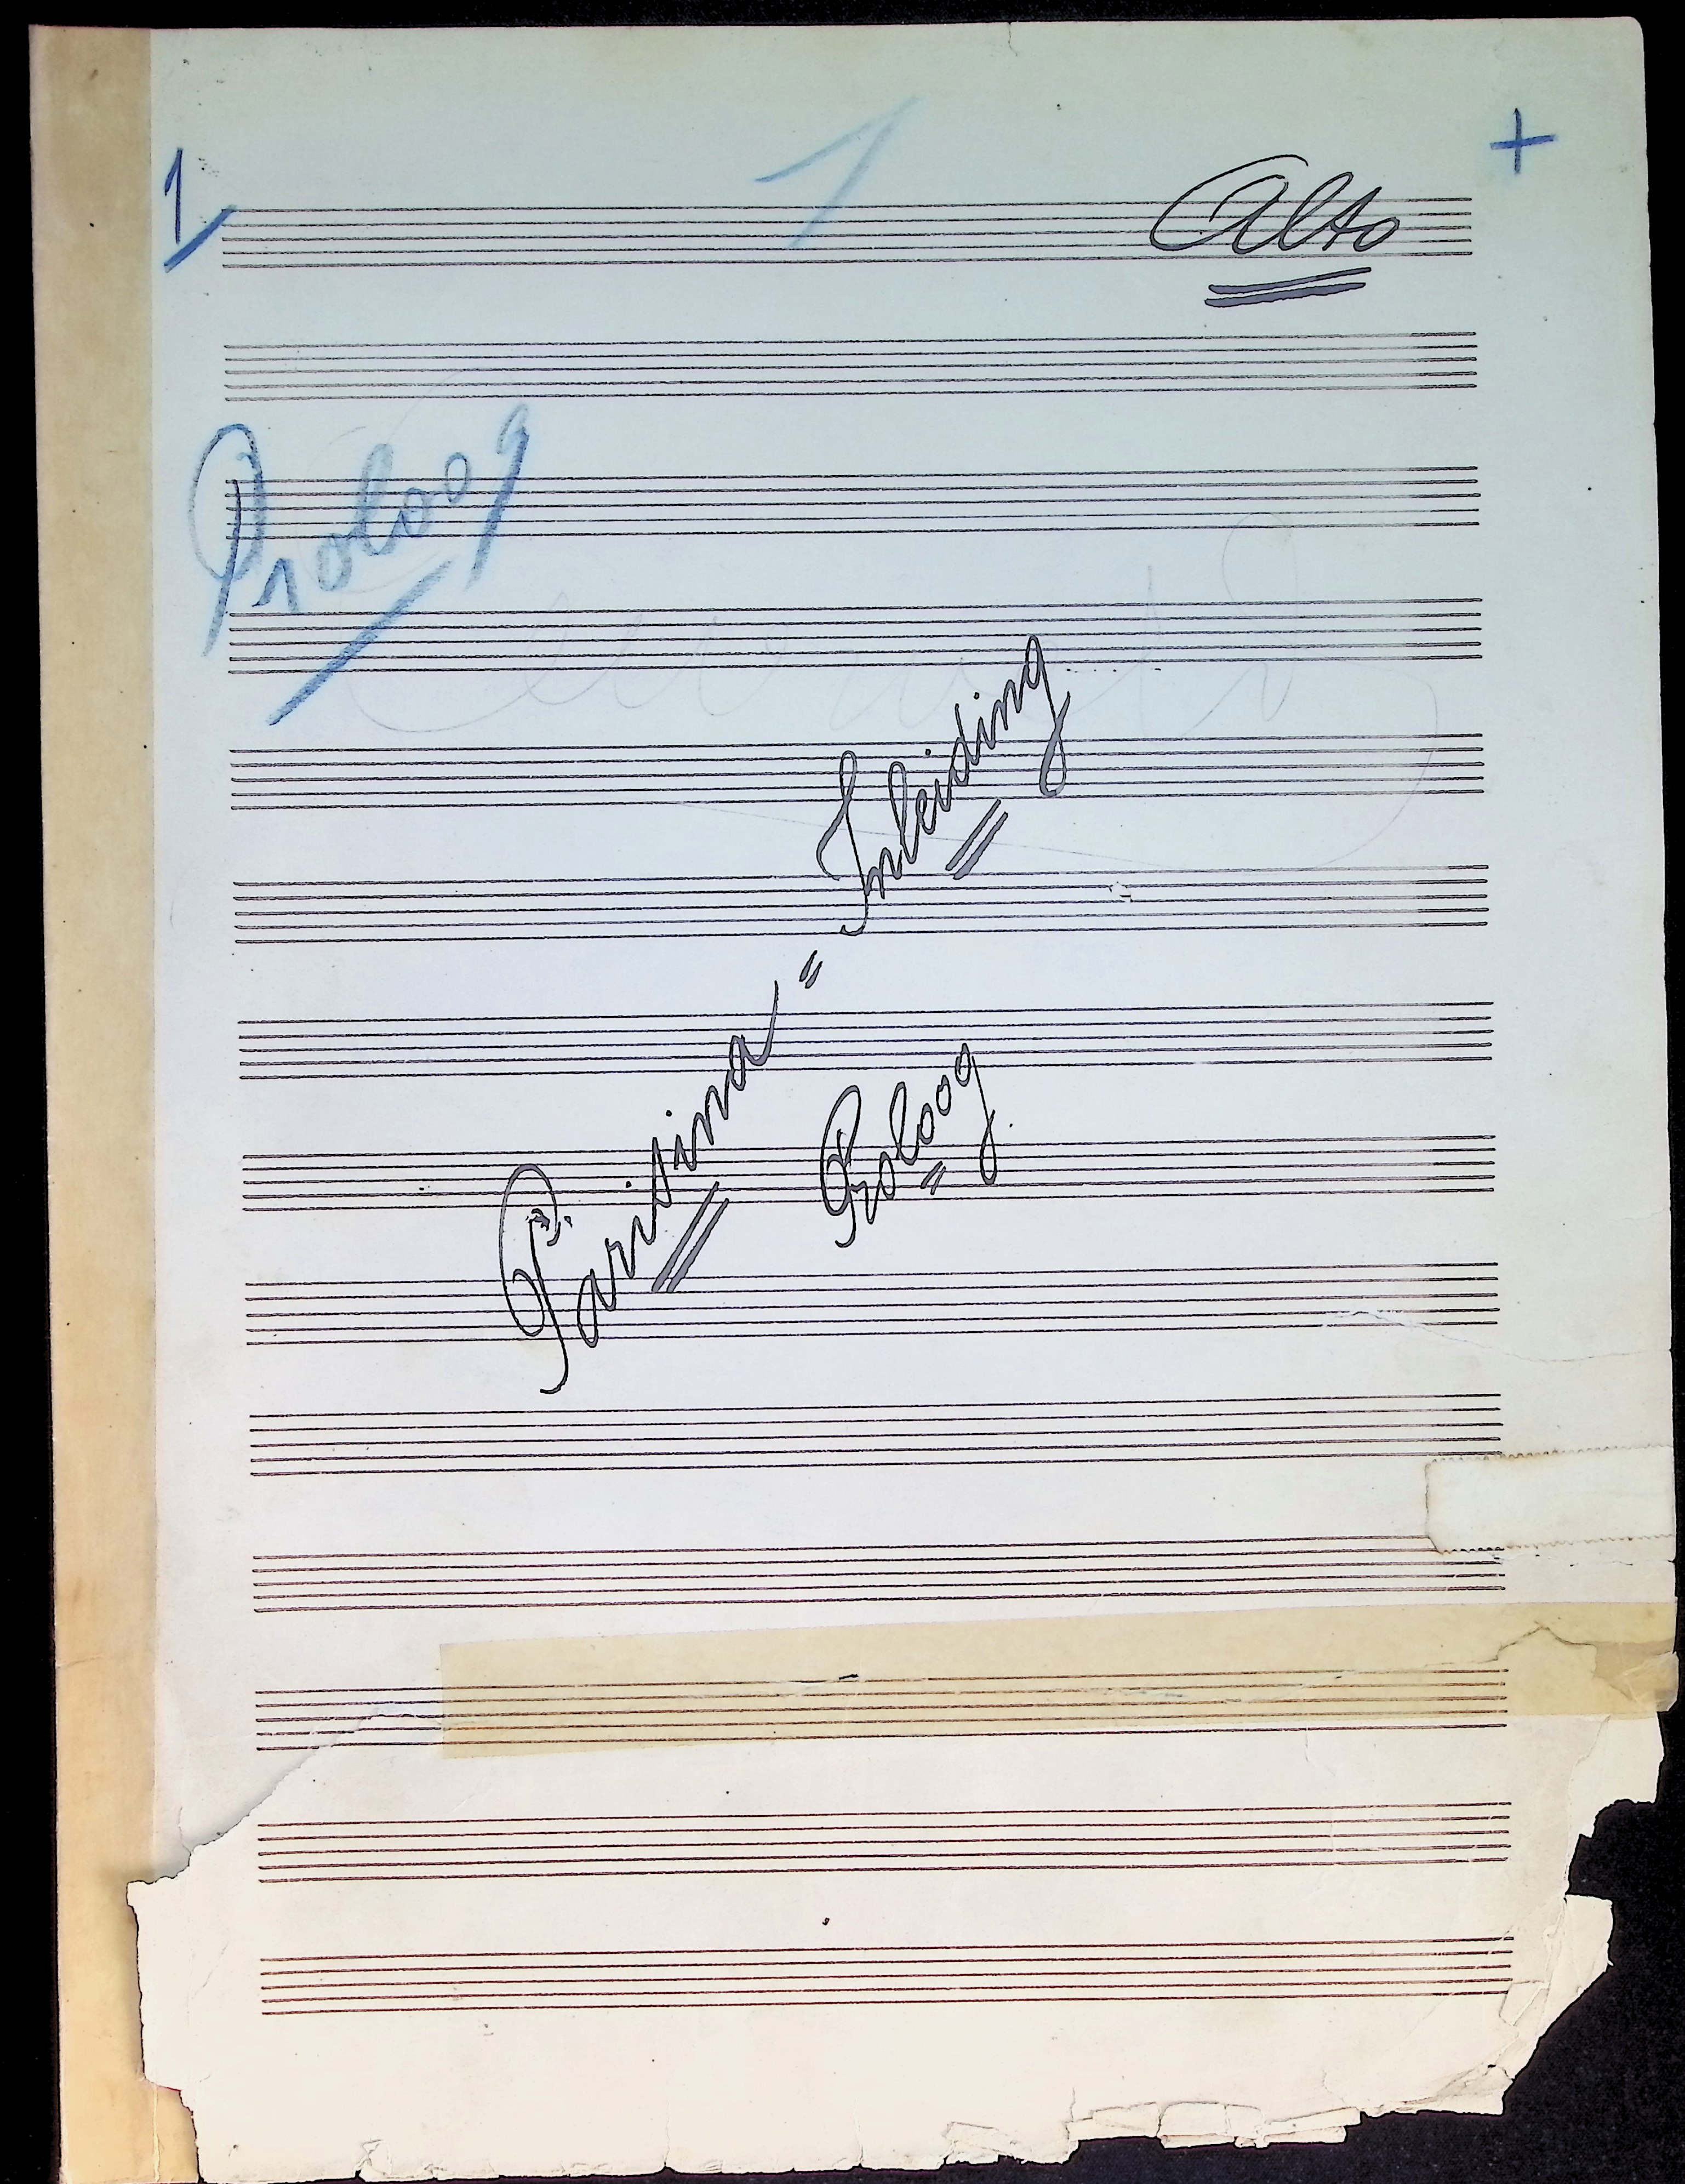 1 1 +
Alto
Proloog
Parisina = Inleiding
Proloog.